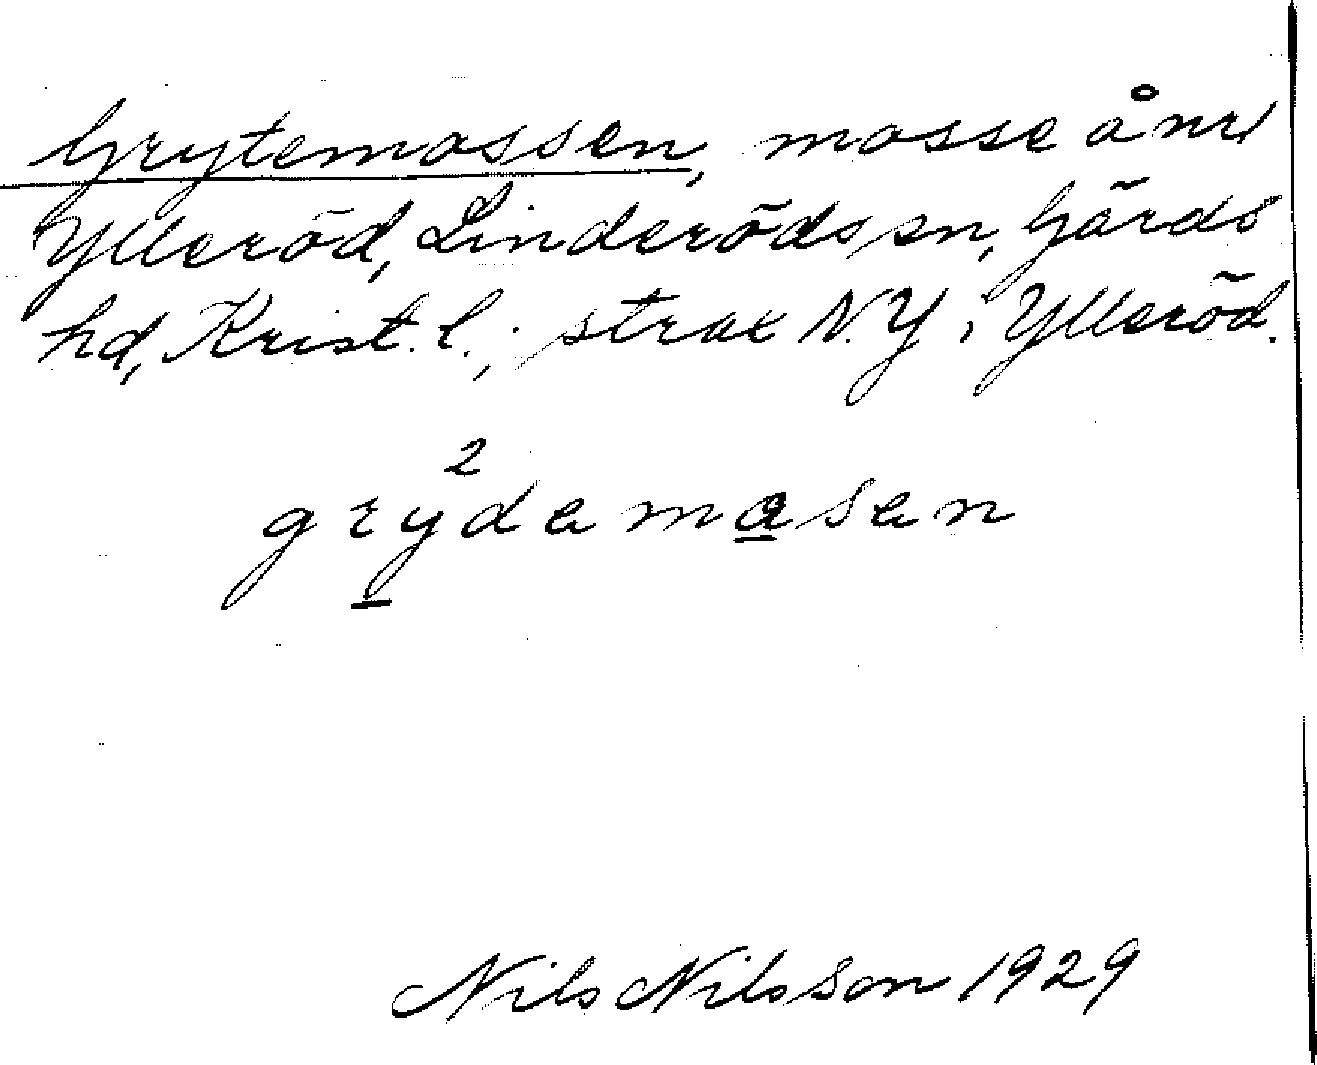 Grytemossen, mosse å nr 1
Ylleröd, Linderöds sn, Gärds
hd, Krist. l.; strax N. Y. i Ylleröd.
2
grydemasen
Nils Nilsson 1929